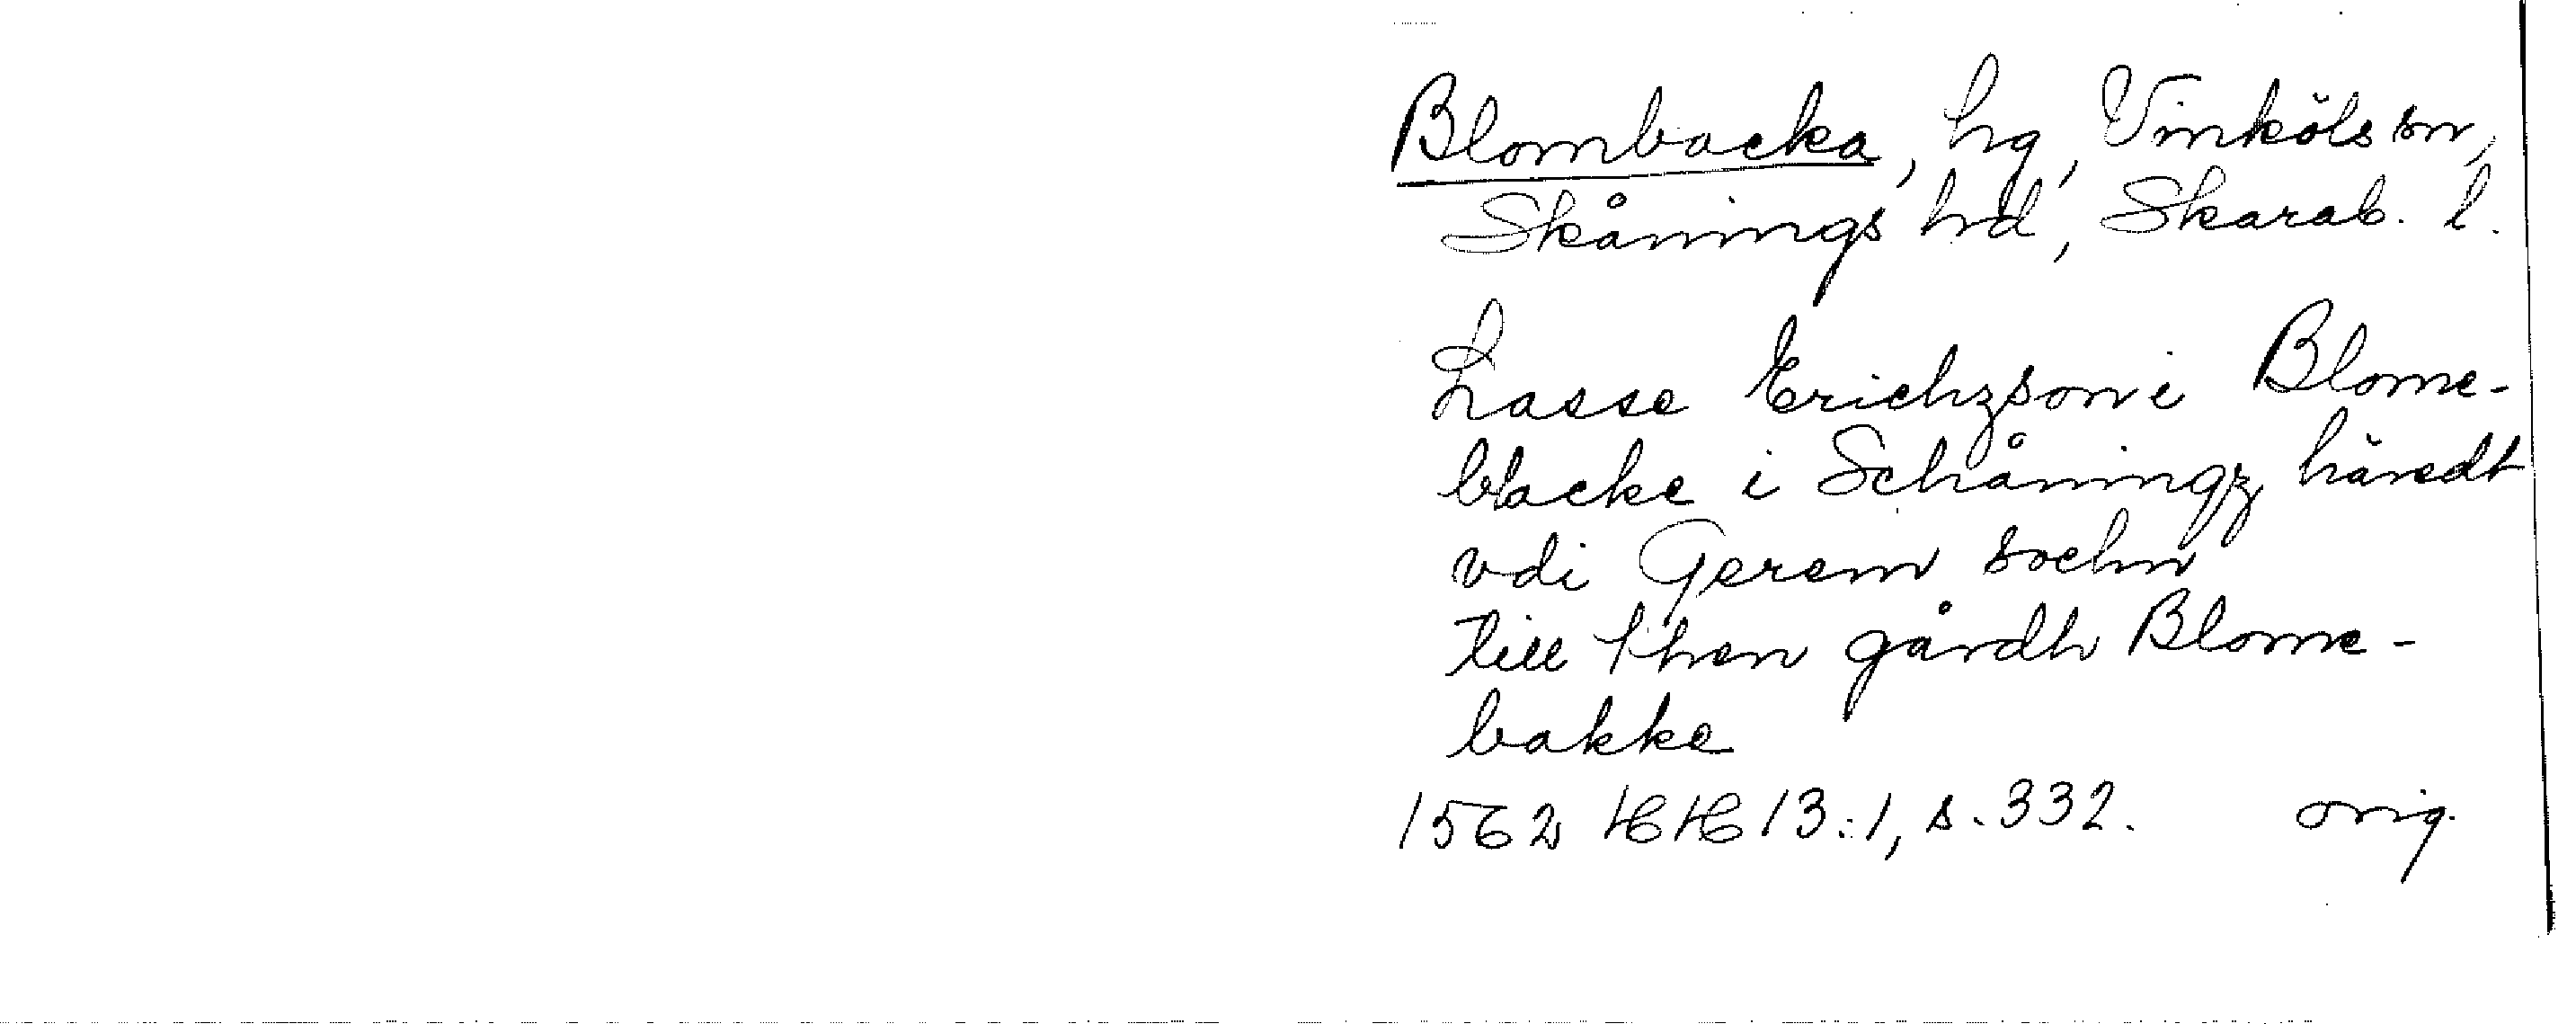 Blombacka, hg, Vinköls sn,
Skånings hd, Skarab. l.
Lasse Erichzson i Blome-
backe i Schåningz häredt
vdi Gerem sochn
till then gårdh Blome-
bakke
1562 HH 13:1, s. 332. orig.